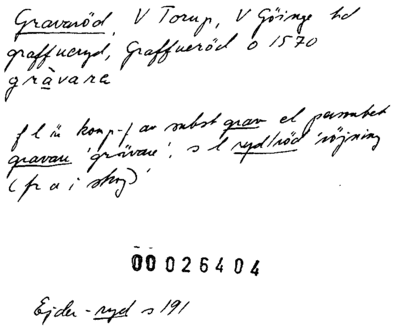 Gravaröd, V Torup, V Göinge hd
graffueryd, Graffueröd o 1570
gràvara
f l är komp-f av subst grav el personbet
gravare 'grävare'. s l ryd/röd 'röjning
(fr a i skog)'
00026404
Ejder-ryd s 191